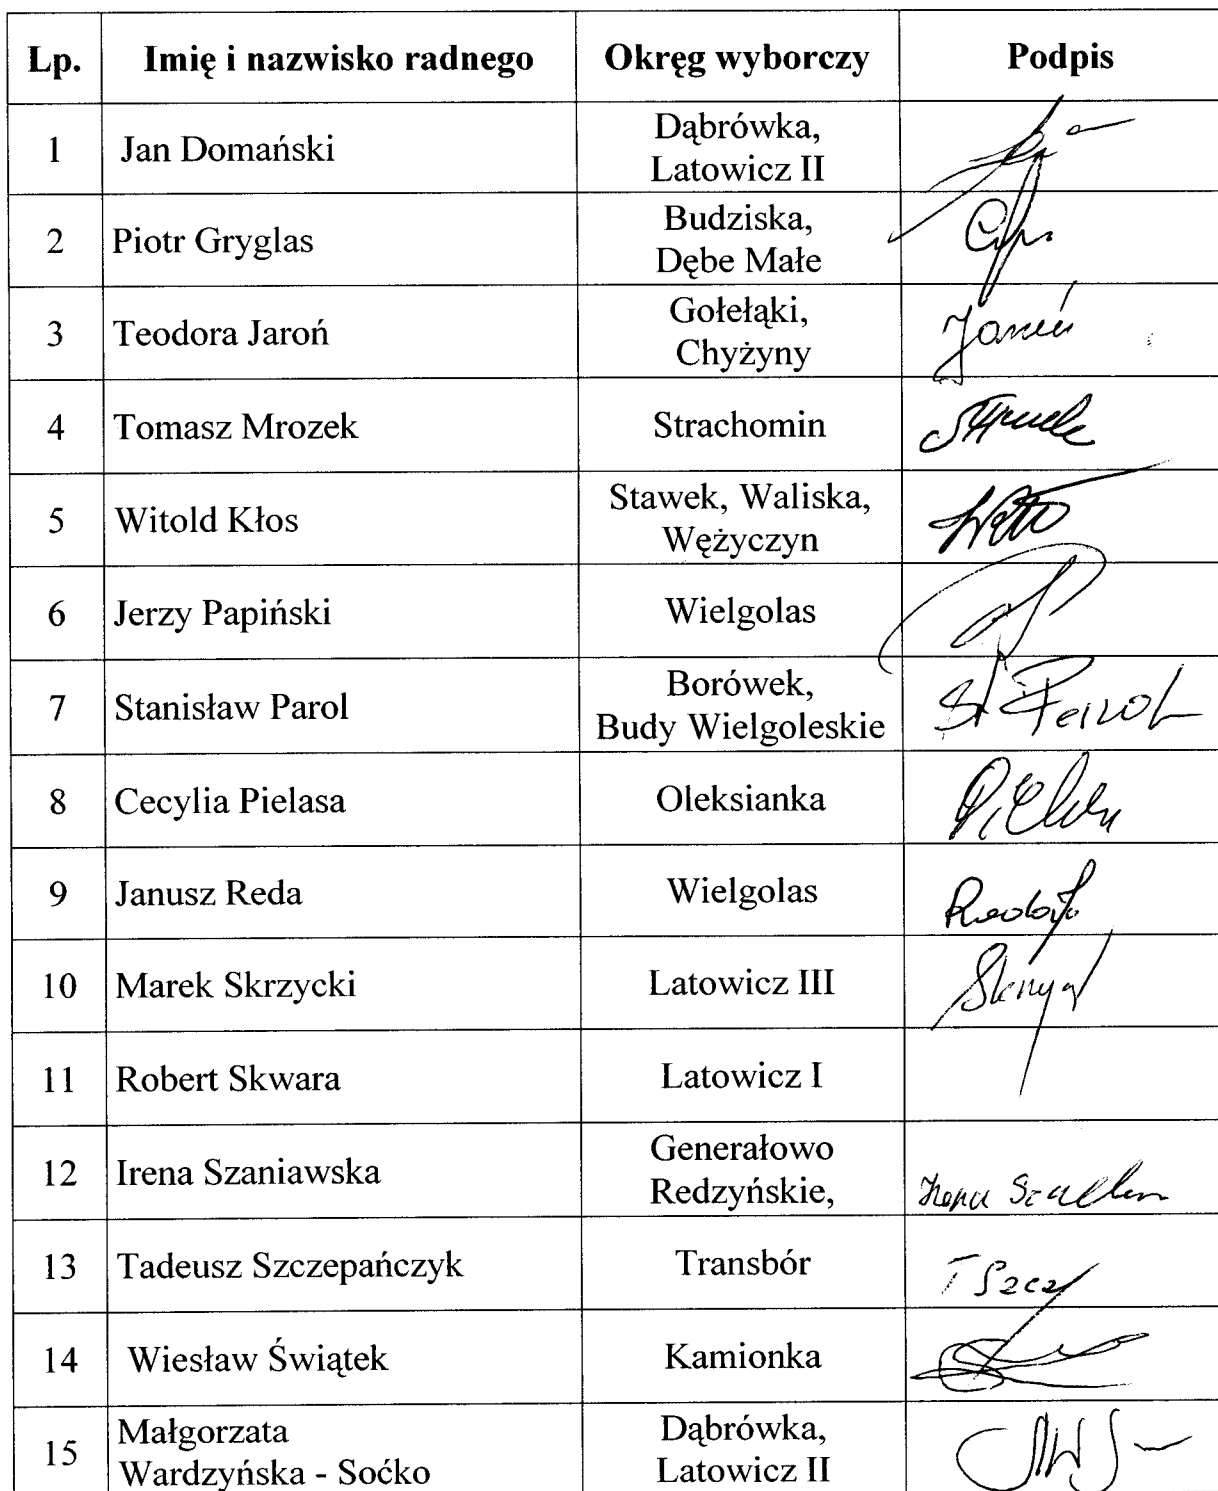 Lp. Imię i nazwisko radnego Okręg wyborczy Podpis
1 Jan Domański Dąbrówka,
Latowicz II
2 Piotr Gryglas Budziska,
Dębe Małe
3 Teodora Jaroń Gołełąki,
Chyżyny
4 Tomasz Mrozek Strachomin
5 Witold Kłos Stawek, Waliska,
Wężyczyn
6 Jerzy Papiński Wielgolas
7 Stanisław Parol Borówek,
Budy Wielgoleskie
8 Cecylia Pielasa Oleksianka
9 Janusz Reda Wielgolas
10 Marek Skrzycki Latowicz III
11 Robert Skwara Latowicz I
12 Irena Szaniawska Generałowo
Redzyńskie,
13 Tadeusz Szczepańczyk Transbór
14 Wiesław Świątek Kamionka
15 Małgorzata
Wardzyńska - Soćko Dąbrówka,
Latowicz II